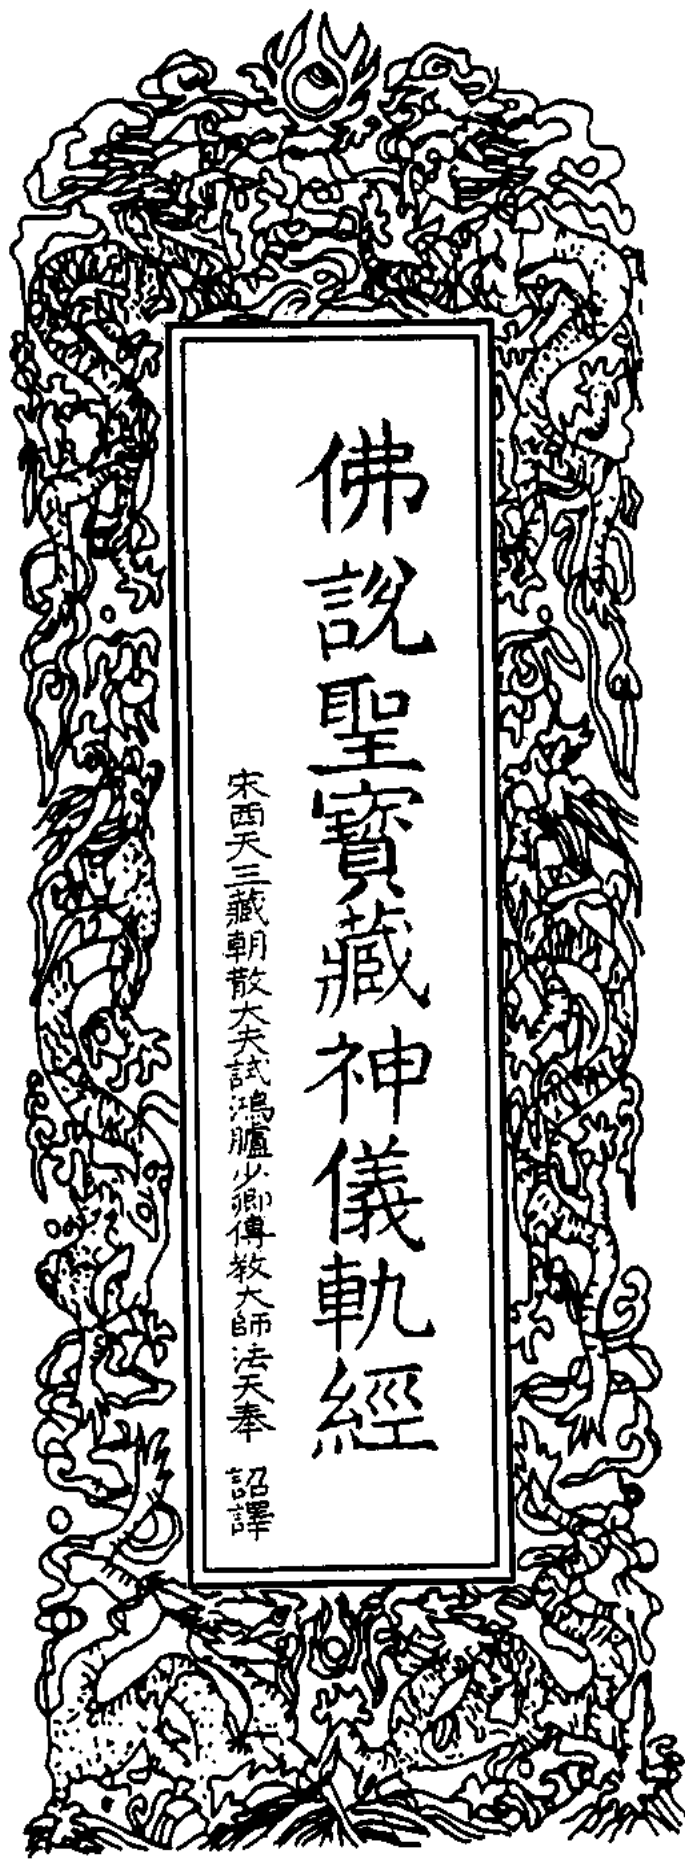 佛說聖寶藏神儀軌經
宋西天三藏朝散大夫試鴻臚少卿傳教大師法天奉　詔譯